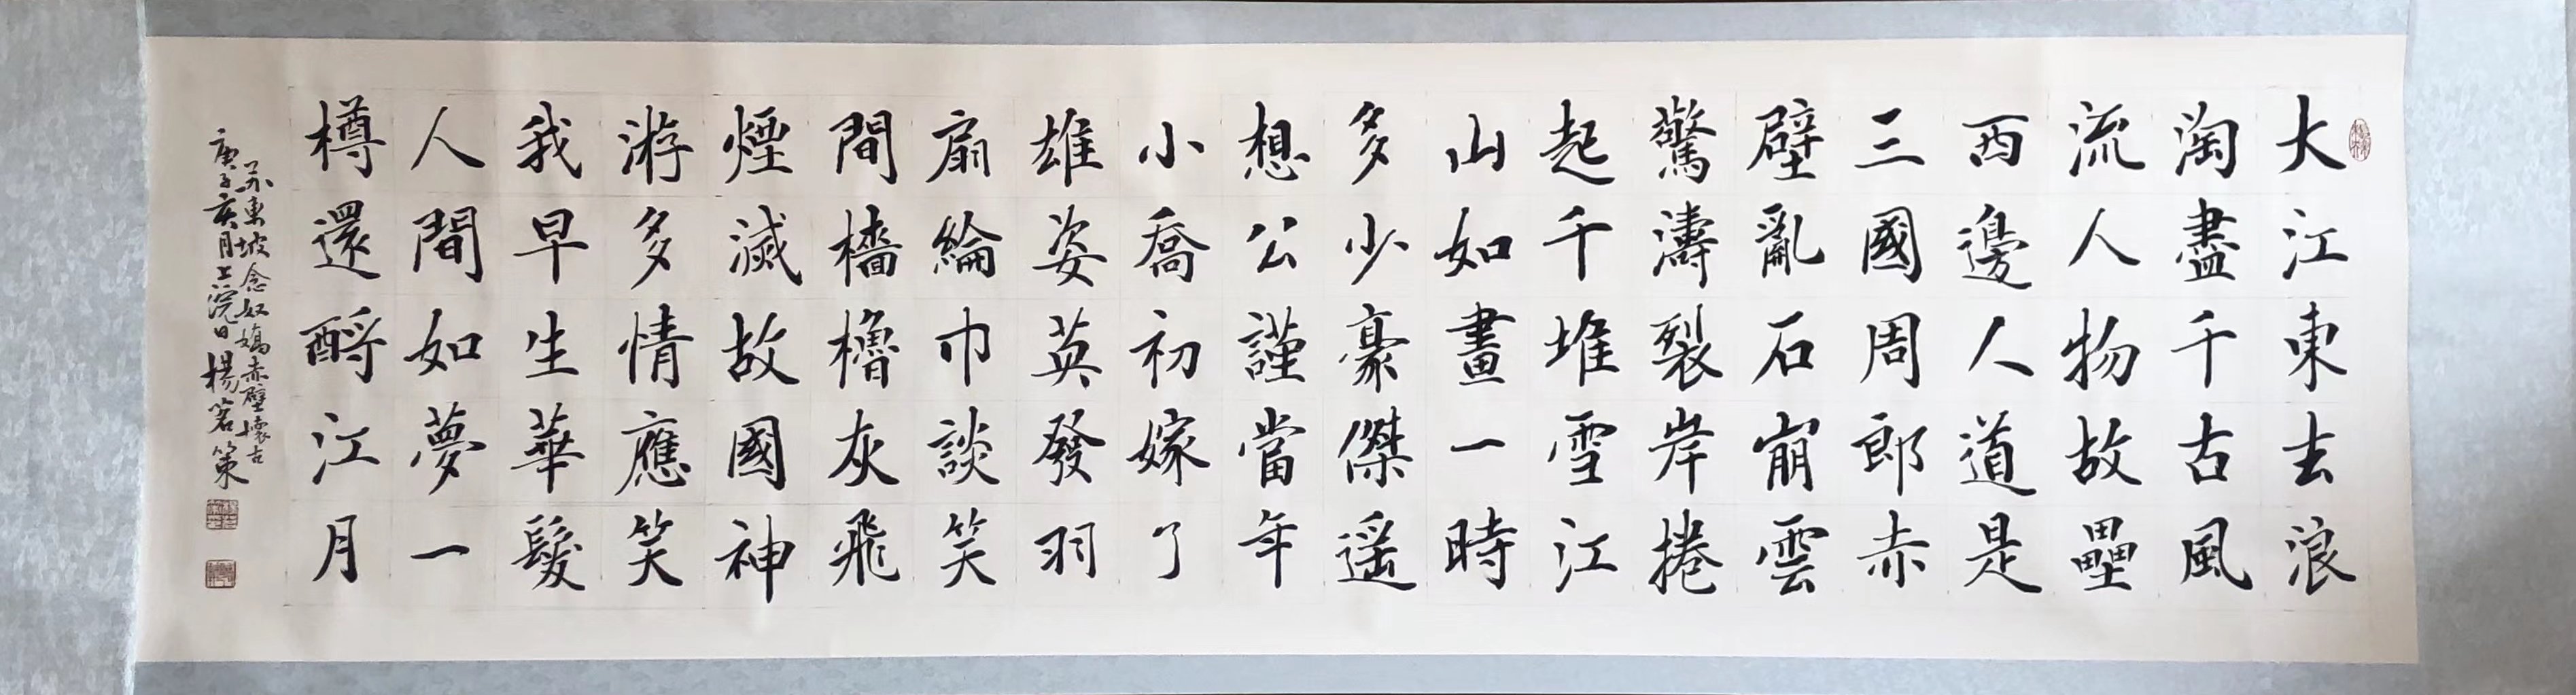 大江東去浪
淘盡千古風
流人物故壘
西邊人道是
三國周郎赤
壁亂石崩雲
驚濤裂岸捲
起千堆雪江
山如畫一時
多少豪傑遥
想公謹當年
小喬初嫁了
雄姿英發羽
扇綸巾談笑
間檣櫓灰飛
煙滅故國神
游多情應笑
我早生華髮
人間如夢一
樽還酹江月
蘇東坡念奴嬌赤壁懷古
庚子亥月上浣日楊茗策